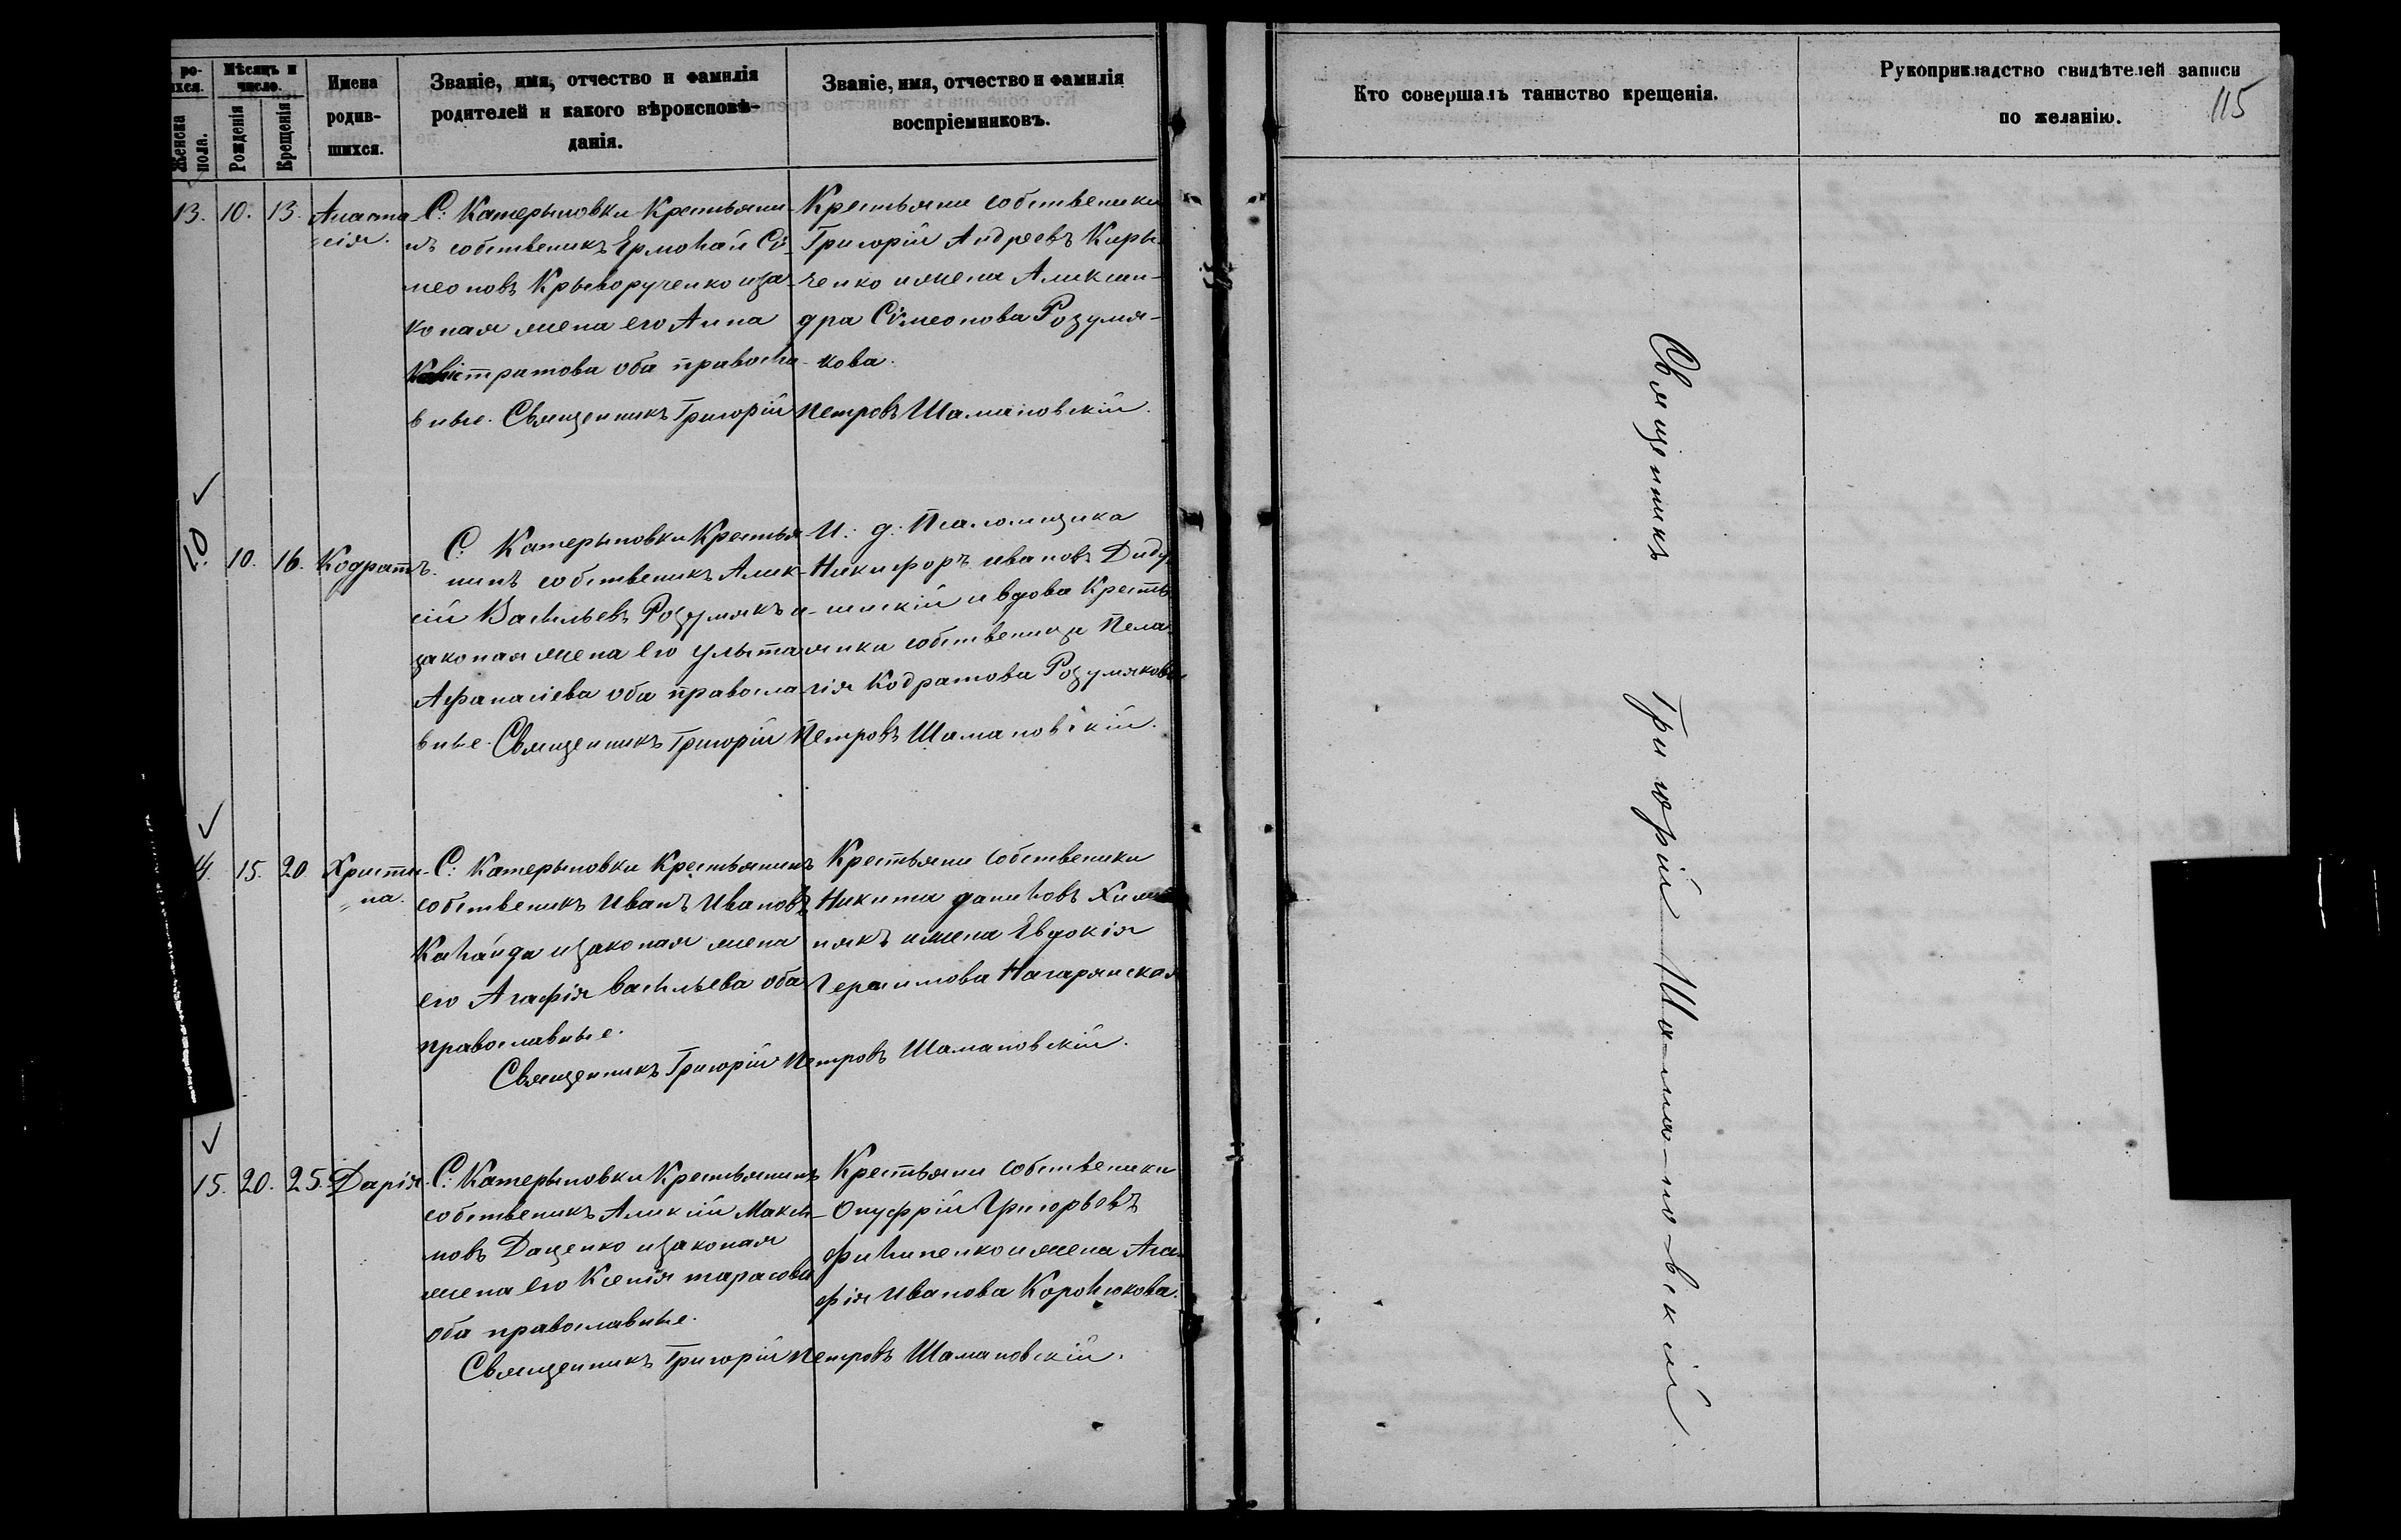 ро-
ихся.
Женска
пола.
Мѣсяцъ и
число.
Рожденія
Крещенія
Имена
родив-
шихся.
Званіе, имя, отчество и фамилія
родителей и какого вѣроисповѣ-
данія.
Званіе, имя, отчество и фамилія
воспріемниковъ.
Кто совершалъ таинство крещенія.
Рукоприкладство свидѣтелей записи
по желанію.
115
13. 10. 13. Анаста
сія.
С: Катерыновки Крестьяни-
нъ собственикъ Ермолай Си-
меоновъ Крыворученко иза-
коная жена его Анна
стратова оба правосла-
вные. Священникъ Григорій Петровъ Шамановскій.
Крестьяни собственики
Григорій Андреевъ Киры-
ченко ижена Алексан-
дра Симеонова Розумя-
кова.
10. 10. 16. Кодратъ.
С: Катерыновки Крестья-
нинъ собственикъ Алек-
сій Васильевъ Розумякъ и
законая жена его Улыта
Афанасіева оба правосла
вные. Священникъ Григорій Петровъ Шамановскій.
И: д: Псаломщика
Никифоръ Ивановъ Диду-
шискій ивдова Кресть
янка собственица Пела
гія Кодратова Розумякова
14. 15. 20. Христи-
на.
С: Катерыновки Крестьянинъ
собственикъ Иванъ Ивановъ
Каланда изаконая жена
его Агафія Васильева оба
православные.
Священникъ Григорій Петровъ Шамановскій.
Крестьяни собственики
Никита Даниловъ
някъ ижена Евдокія
Герасимова Нагарянская
15. 20. 25. Дарія.
С: Катерыновки Крестьянинъ
собственикъ Алексій Макси-
мовъ Даценко изаконая
жена его Ксенія Тарасова
оба православные.
Священникъ Григорій Петровъ Шамановскій.
Крестьяни собственики
Онуфрій Григорьевъ
Филипенко ижена Ага-
фія Иванова Королюкова.
Священникъ Григорій Шамановскій.